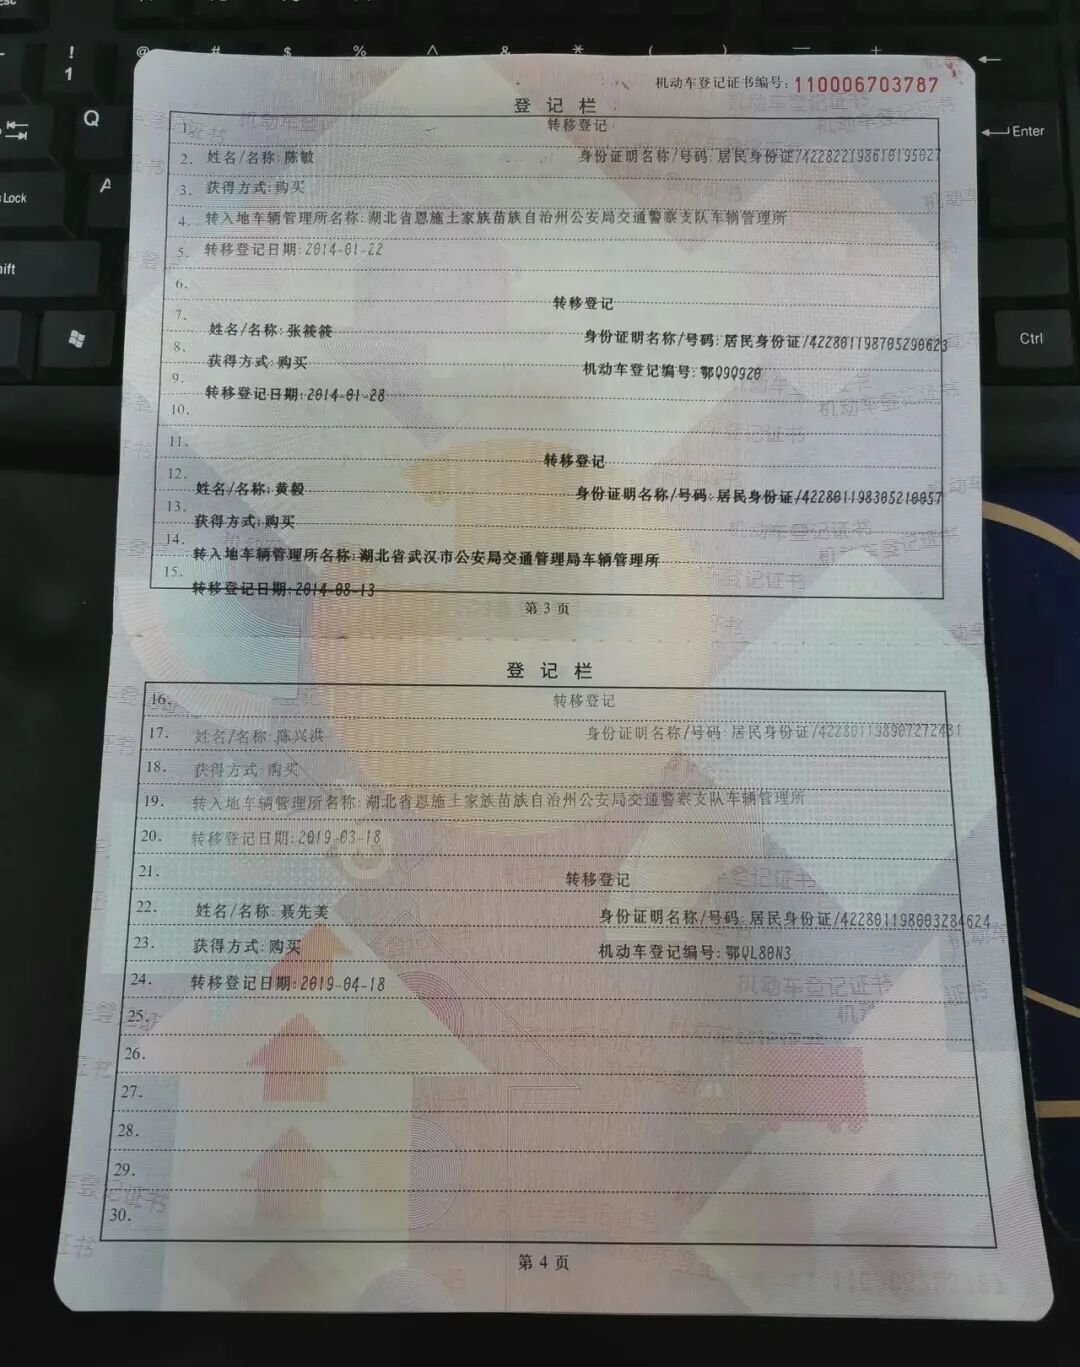 机动车登记证书编号: 110006703787
登 记 栏
1. 转移登记
2. 姓名/名称:陈敏 身份证明名称/号码:居民身份证/422822198610195027
3. 获得方式:购买
4. 转入地车辆管理所名称:湖北省恩施土家族苗族自治州公安局交通警察支队车辆管理所
5. 转移登记日期:2014-01-22
6. 转移登记
7. 姓名/名称:张筱筱 身份证明名称/号码:居民身份证/422801198705290623
8. 获得方式:购买 机动车登记编号:鄂Q9Q920
9. 转移登记日期:2014-01-28
10.
11. 转移登记
12. 姓名/名称:黄毅 身份证明名称/号码:居民身份证/422801198305210057
13. 获得方式:购买
14. 转入地车辆管理所名称:湖北省武汉市公安局交通管理局车辆管理所
15. 转移登记日期:2014-08-13
第 3 页
登 记 栏
16. 转移登记
17. 姓名/名称:陈兴洪 身份证明名称/号码:居民身份证/422801198907272431
18. 获得方式:购买
19. 转入地车辆管理所名称:湖北省恩施土家族苗族自治州公安局交通警察支队车辆管理所
20. 转移登记日期:2019-03-18
21. 转移登记
22. 姓名/名称:聂先美 身份证明名称/号码:居民身份证/422801198003284624
23. 获得方式:购买 机动车登记编号:鄂QL80N3
24. 转移登记日期:2019-04-18
25.
26.
27.
28.
29.
30.
第 4 页
! @ # $ % ^ & * ( ) — +
1
Q
A
Enter
Ctrl